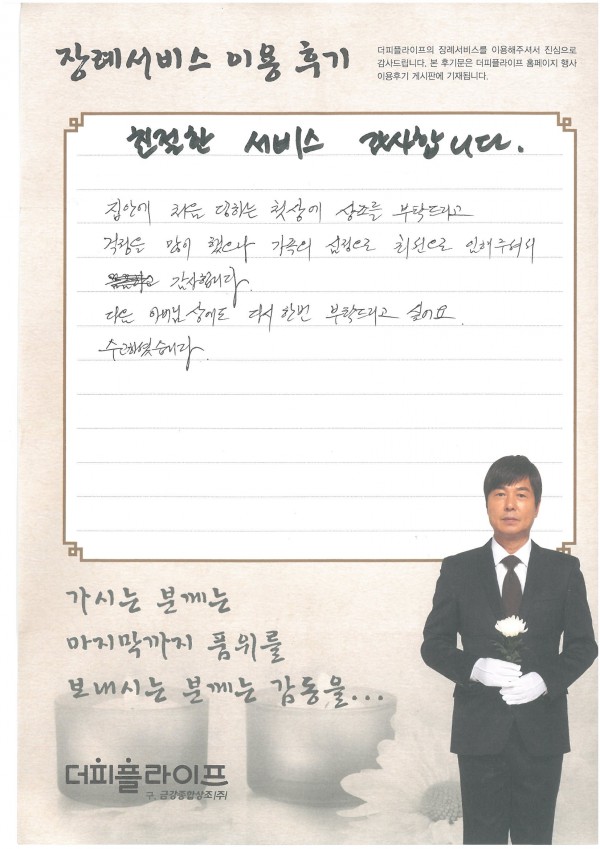 장례서비스 이용 후기
더피플라이프의 장례서비스를 이용해주셔서 진심으로
감사드립니다. 본 후기문은 더피플라이프 홈페이지 행사
이용후기 게시판에 기재됩니다.
친절한 서비스 감사합니다.
집안에 처음 당하는 첫상에 상조를 부탁드리고
걱정을 많이 했으나 가족의 심정으로 최선으로 임해주셔서
감사합니다.
다음 아버님 상에도 다시 한번 부탁드리고 싶어요.
수고하셨습니다.
가시는 분께는
마지막까지 품위를
보내시는 분께는 감동을...
더피플라이프
구. 금강종합상조(주)